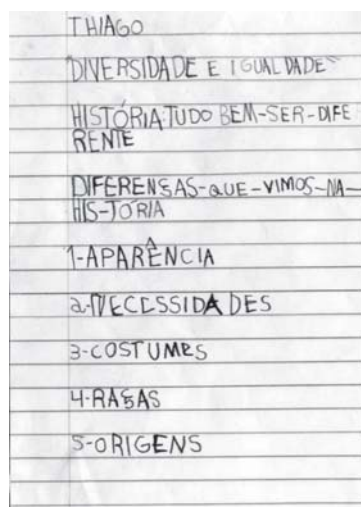 THIAGO
"DIVERSIDADE E IGUALDADE"
HISTÓRIA:TUDO BEM-SER-DIFE
RENTE
DIFERENSAS-QUE-VIMOS-NA-
HIS-TÓRIA
1-APARÊNCIA
2-NECESSIDADES
3-COSTUMES
4-RASAS
5-ORIGENS